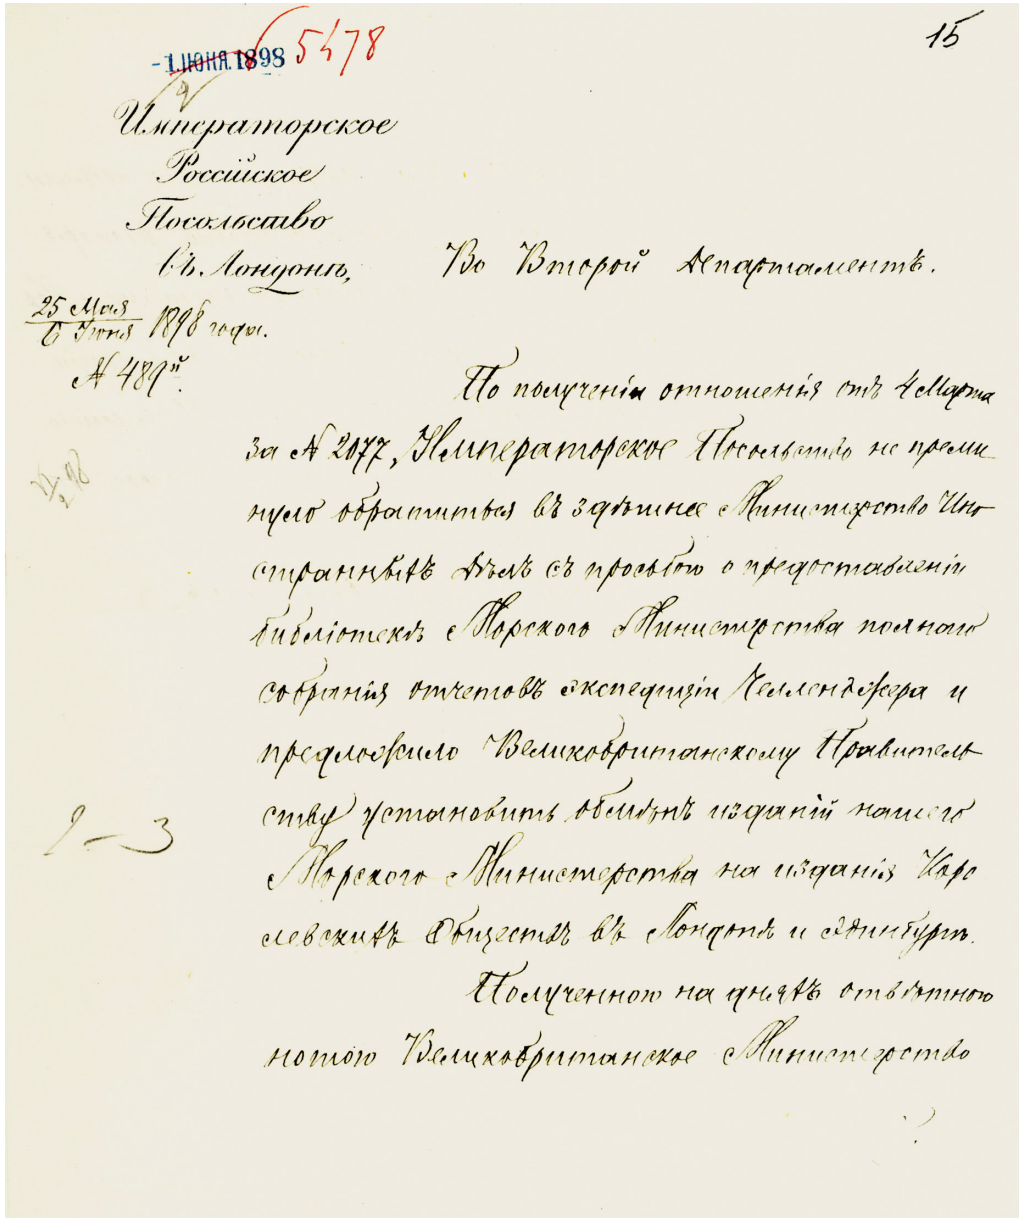 15
-1 ИЮНЯ 1898
5478
Императорское
Россiйское
Посольство
въ Лондонѣ,
Во Второй Департаментъ.
25 Мая
6 Iюня 1898 года.
№ 489й.
По полученiи отношенiя отъ 4 Марта
за № 2077, Императорское Посольство не преми-
нуло обратиться въ здѣшнее Министерство Ино-
странныхъ Дѣлъ съ просьбою о предоставленiи
библiотекѣ Морского Министерства полнаго
собранiя отчетовъ экспедицiи Челленджера и
предложило Великобританскому Правитель-
ству установить обмѣнъ изданiй нашего
1-3
Морского Министерства на изданiя Коро-
левскихъ Обществъ въ Лондонѣ и Эдинбургѣ.
Полученною на дняхъ отвѣтною
нотою Великобританское Министерство